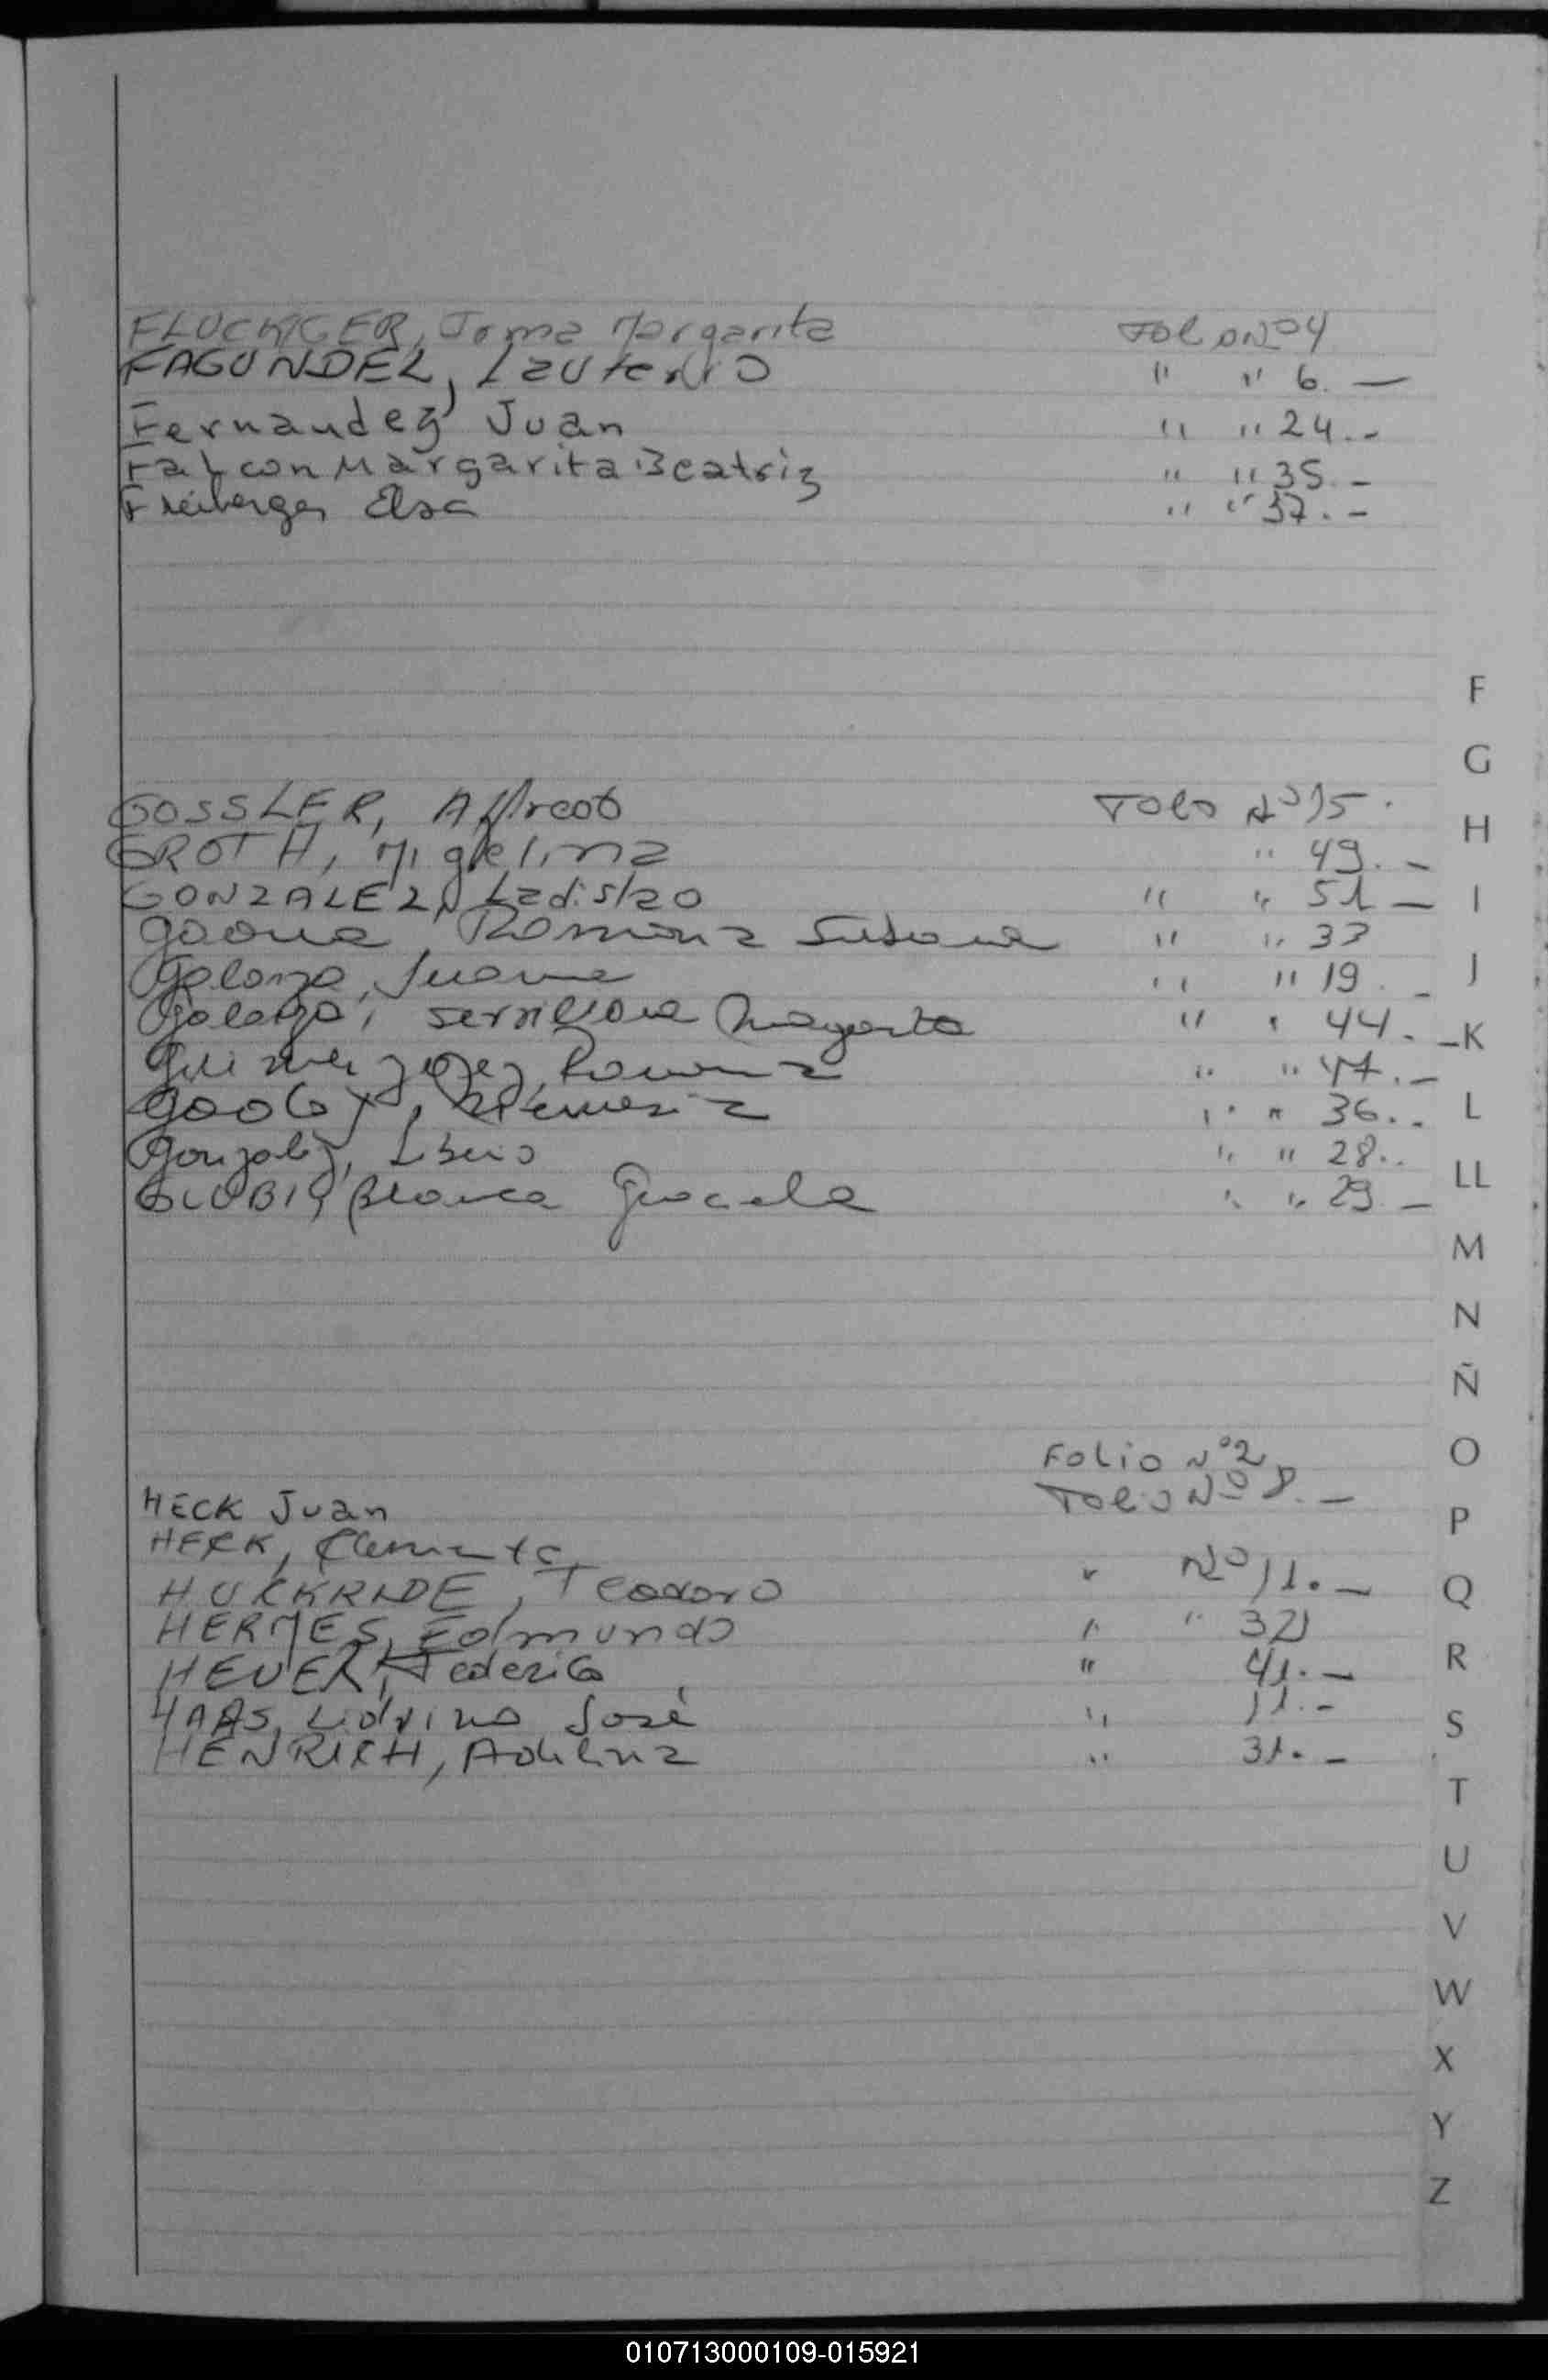 FLUCKIGER, Irma Margarita Folio Nº 4
FAGUNDEZ, Lauterio " " 6. —
Fernandez Juan " " 24. -
Falcon Margarita Beatriz " " 35. -
Freiberger Elsa " " 37. -
F
G
GOSSLER, Alfredo Folio Nº 15.
H
GROTH, Miguelina " 49. -
GONZALEZ, Ladislao " " 51 —
I
gaona, Romona Susana " " 33
Galarza, Juana " " 19. -
J
Galarza, Margarita " " 44. -
K
Ramona " " 47. -
L
" " 36. -
Gonzalez, Liberio " " 28. -
LL
GLUBIS, Blanca Graciela " " 29. —
M
N
Ñ
Folio Nº 2
O
HECK Juan Folio Nº 8. —
P
HECK, Clemente " Nº 11. —
Q
HUCKRIDE, Teodoro
HERMES, Edmundo " " 32
R
HEUER, Federico " 41. —
HAAS, Lidvino José " 11. -
S
HENRICH, Adelina " 31. -
T
U
V
W
X
Y
Z
010713000109-015921